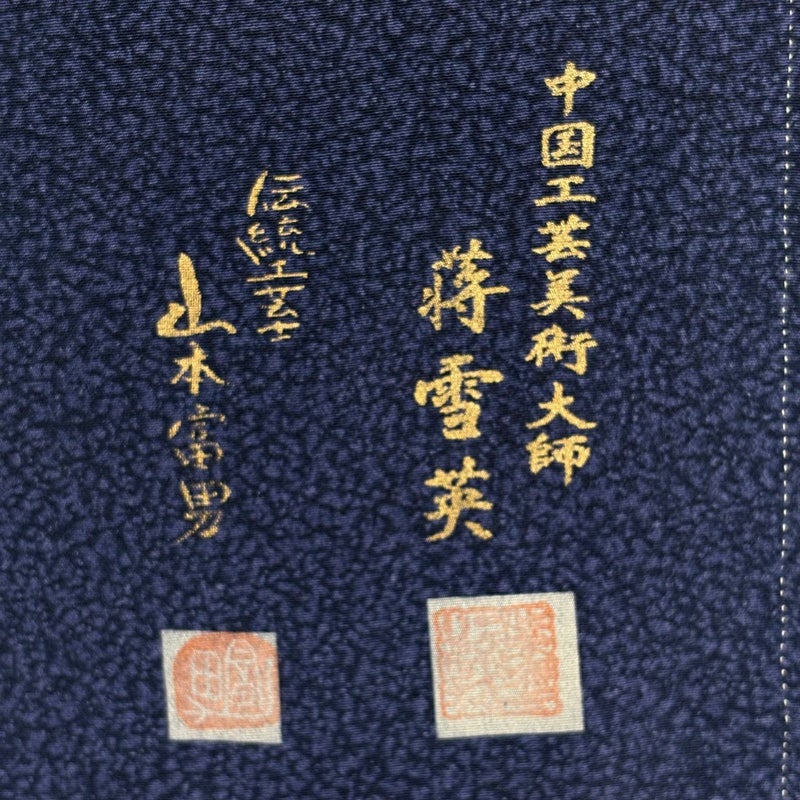 中国工芸美術大師
蒋雪英
伝統工芸士
山本富男